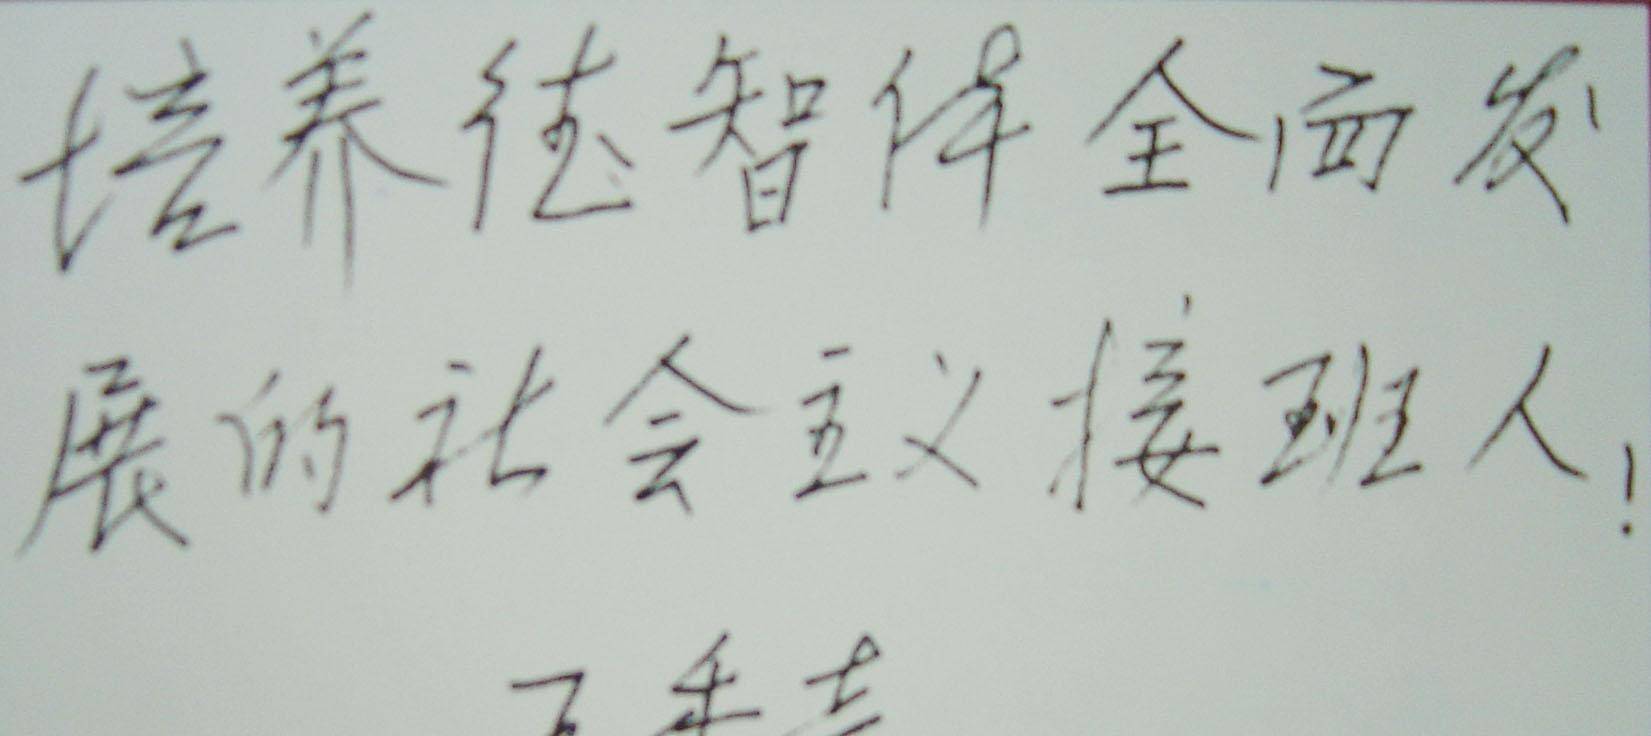 培养德智体全面发
展的社会主义接班人!